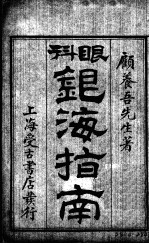 顧養吾先生著
眼科
銀海指南
上海受古書店發行